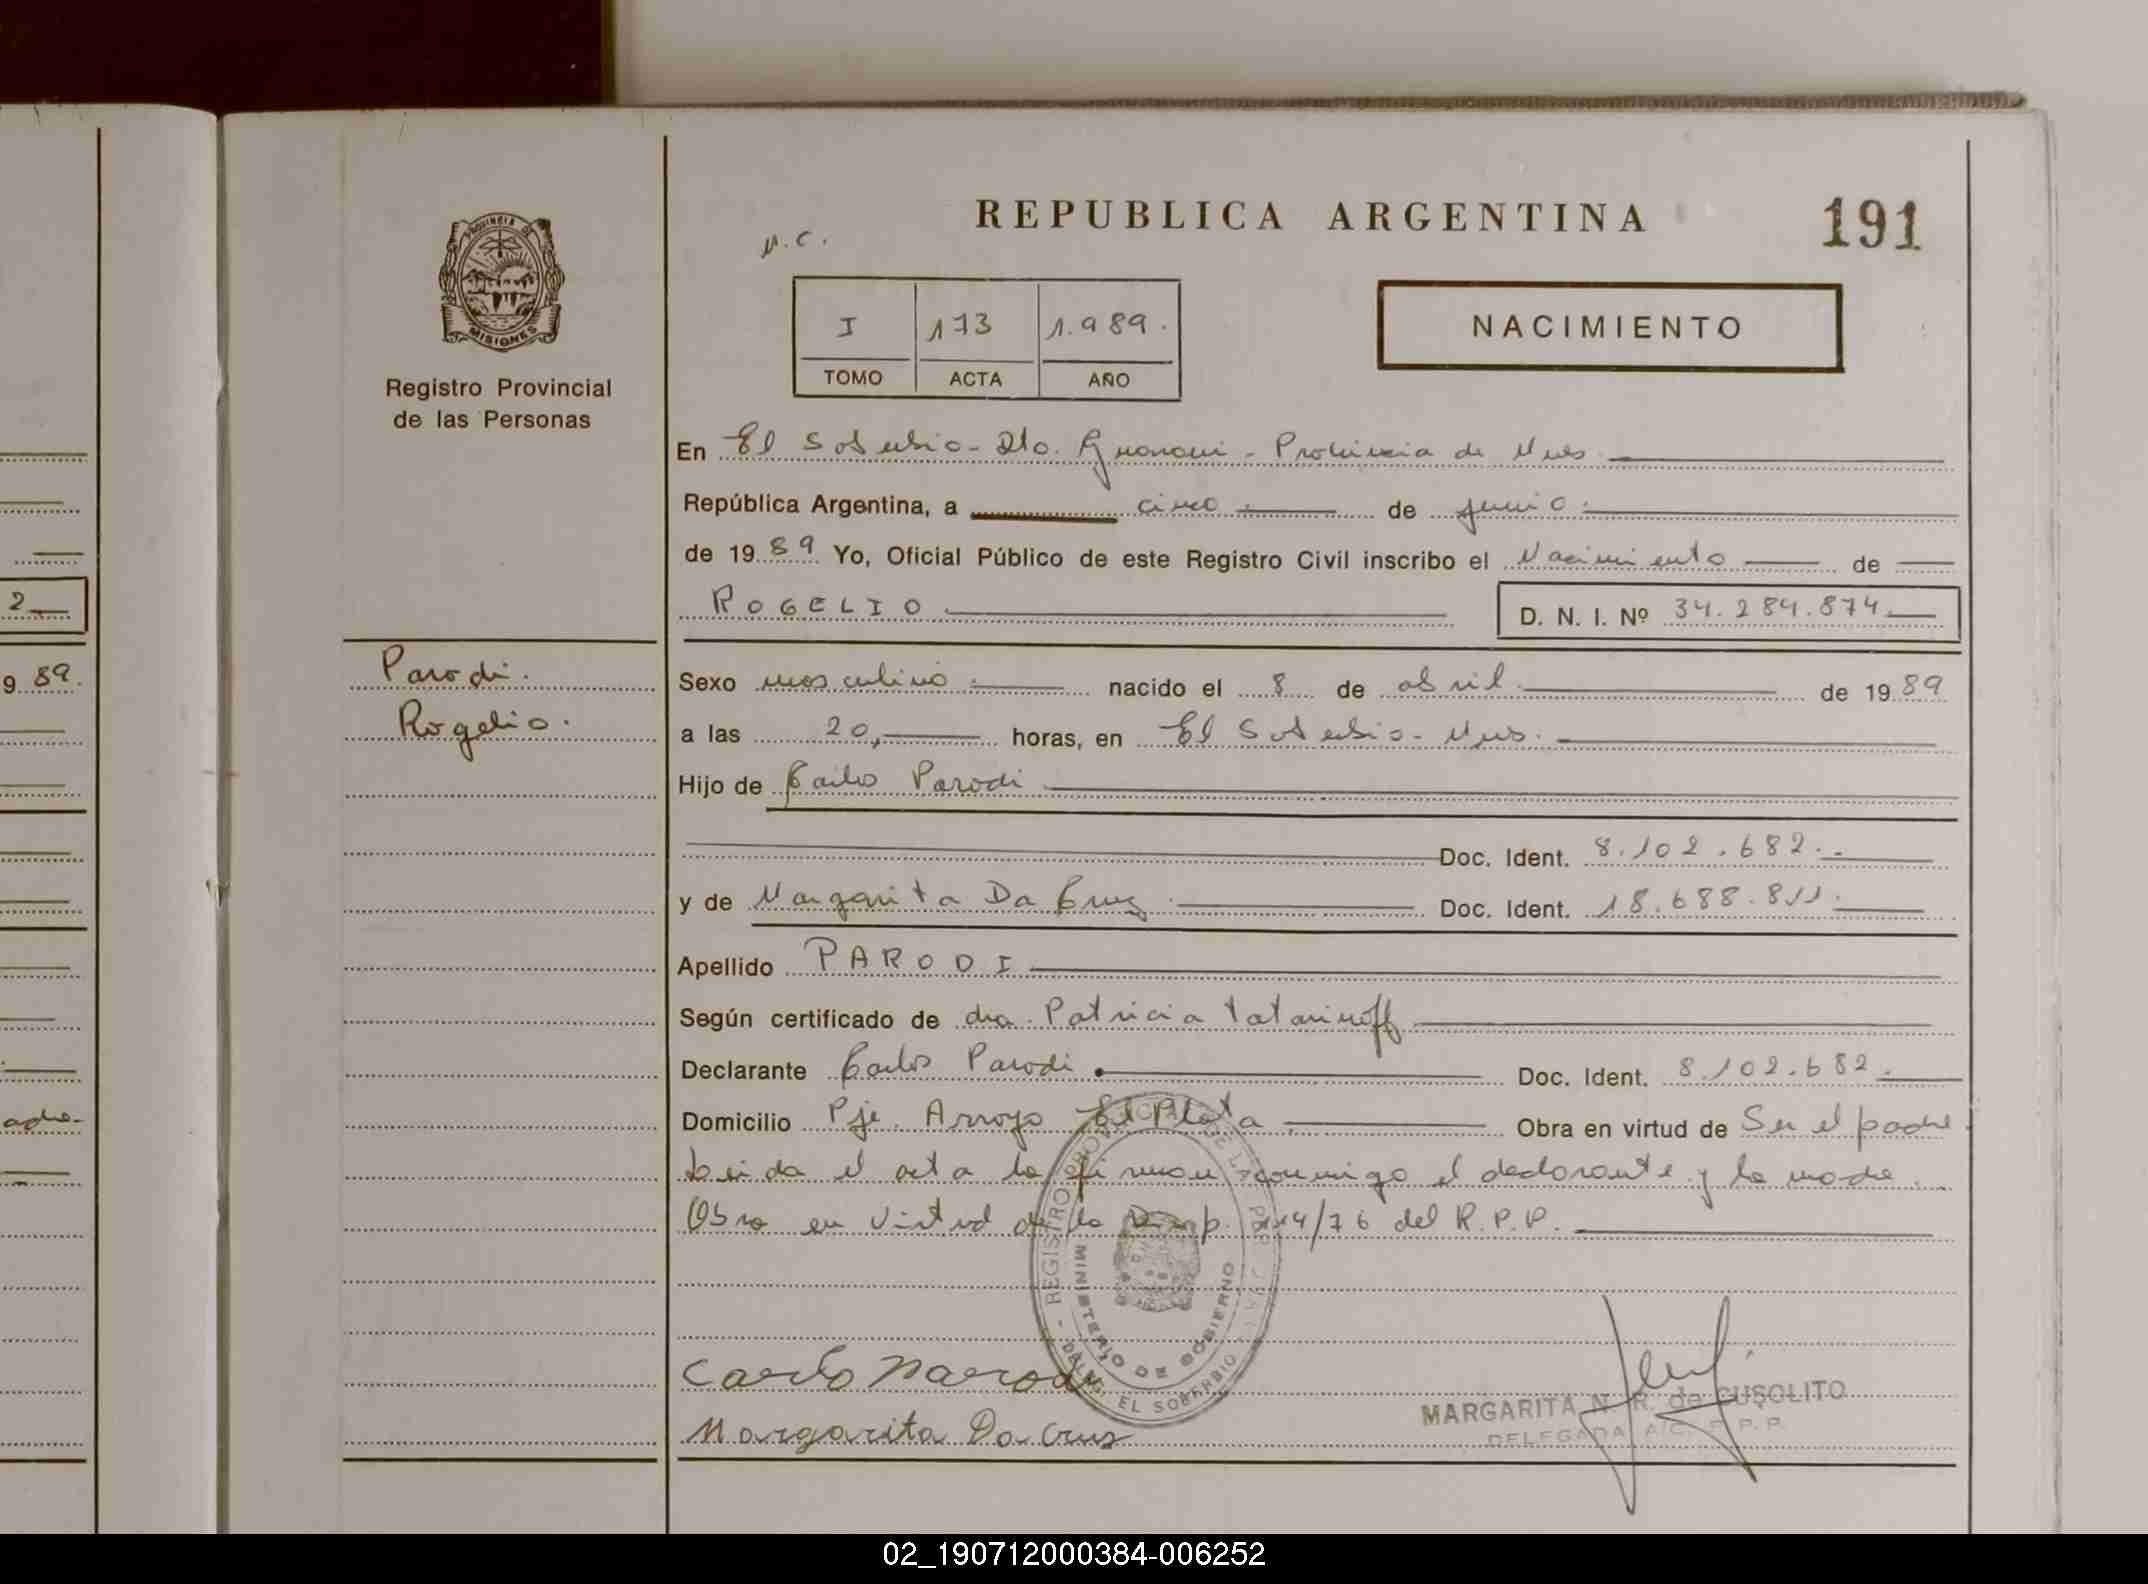 REPUBLICA ARGENTINA
191
N.C.
PROVINCIA DE
MISIONES
Registro Provincial
de las Personas
I 173 1.989.
TOMO ACTA AÑO
NACIMIENTO
En El Soberbio - Dto. Guarani - Provincia de Mnes.
República Argentina, a cinco de junio
de 1989 Yo, Oficial Público de este Registro Civil inscribo el Nacimiento de
ROGELIO D. N. I. Nº 34.284.874.
2
Parodi.
Rogelio.
9 89.
Sexo masculino nacido el 8 de abril de 1989
a las 20, horas, en El Soberbio - Mnes.
Hijo de Carlos Parodi
Doc. Ident. 8.102.682.
y de Margarita Da Cruz Doc. Ident. 18.688.811.
Apellido PARODI
Según certificado de dra. Patricia Tatarinoff
Declarante Carlos Parodi Doc. Ident. 8.102.682.
Domicilio Pje. Arroyo El Plata Obra en virtud de Ser el padre.
Leida el acta la firman conmigo el declarante y la madre.
Obra en virtud de la Disp. 114/76 del R.P.P.
REGISTRO PROVINCIAL DE LAS PER
MINISTERIO DE GOBIERNO
EL SOBERBIO
Carlo Parodi
Margarita Da Cruz
MARGARITA N. R. de CUSOLITO
DELEGADA R. P. P.
02_190712000384-006252